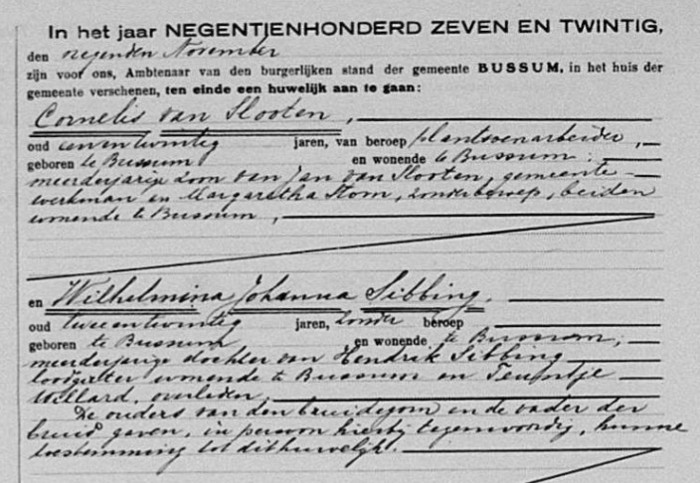 In het jaar NEGENTIENHONDERD ZEVEN EN TWINTIG,
den negenden November
zijn voor ons, Ambtenaar van den burgerlijken stand der gemeente BUSSUM, in het huis der
gemeente verschenen, ten einde een huwelijk aan te gaan:
Cornelis van Slooten,
oud eenentwintig jaren, van beroep plantsoenarbeider,
geboren te Bussum en wonende te Bussum;
meerderjarige zoon van Jan van Slooten, gemeente-
werkman en Margaretha Stom, zonder beroep, beiden
wonende te Bussum,
en Wilhelmina Johanna Sibbing,
oud tweeentwintig jaren, zonder beroep
geboren te Bussum en wonende te Bussum;
meerderjarige dochter van Hendrik Sibbing
loodgieter wonende te Bussum en Teuntje
overleden.
De ouders van den bruidegom en de vader der
bruid gaven, in persoon hierbij tegenwoordig, hunne
toestemming tot dit huwelijk.